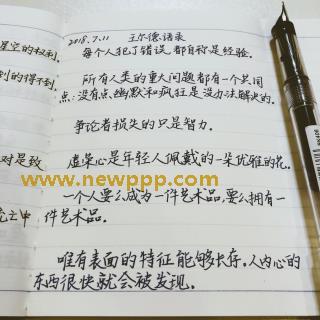 2018.7.11 王尔德语录
星空的权利.
每个人犯了错误,都自称是经验.
到的得不到.
所有人类的重大问题都有一个共同
点:没有点幽默和疯狂是没办法解决的.
争论者损失的只是智力.
对是致
虚荣心是年轻人佩戴的一朵优雅的花.
www.newppp.com
一个人要么成为一件艺术品,要么拥有一
亡中
件艺术品.
唯有表面的特征能够长存.人内心的
东西很快就会被发现.